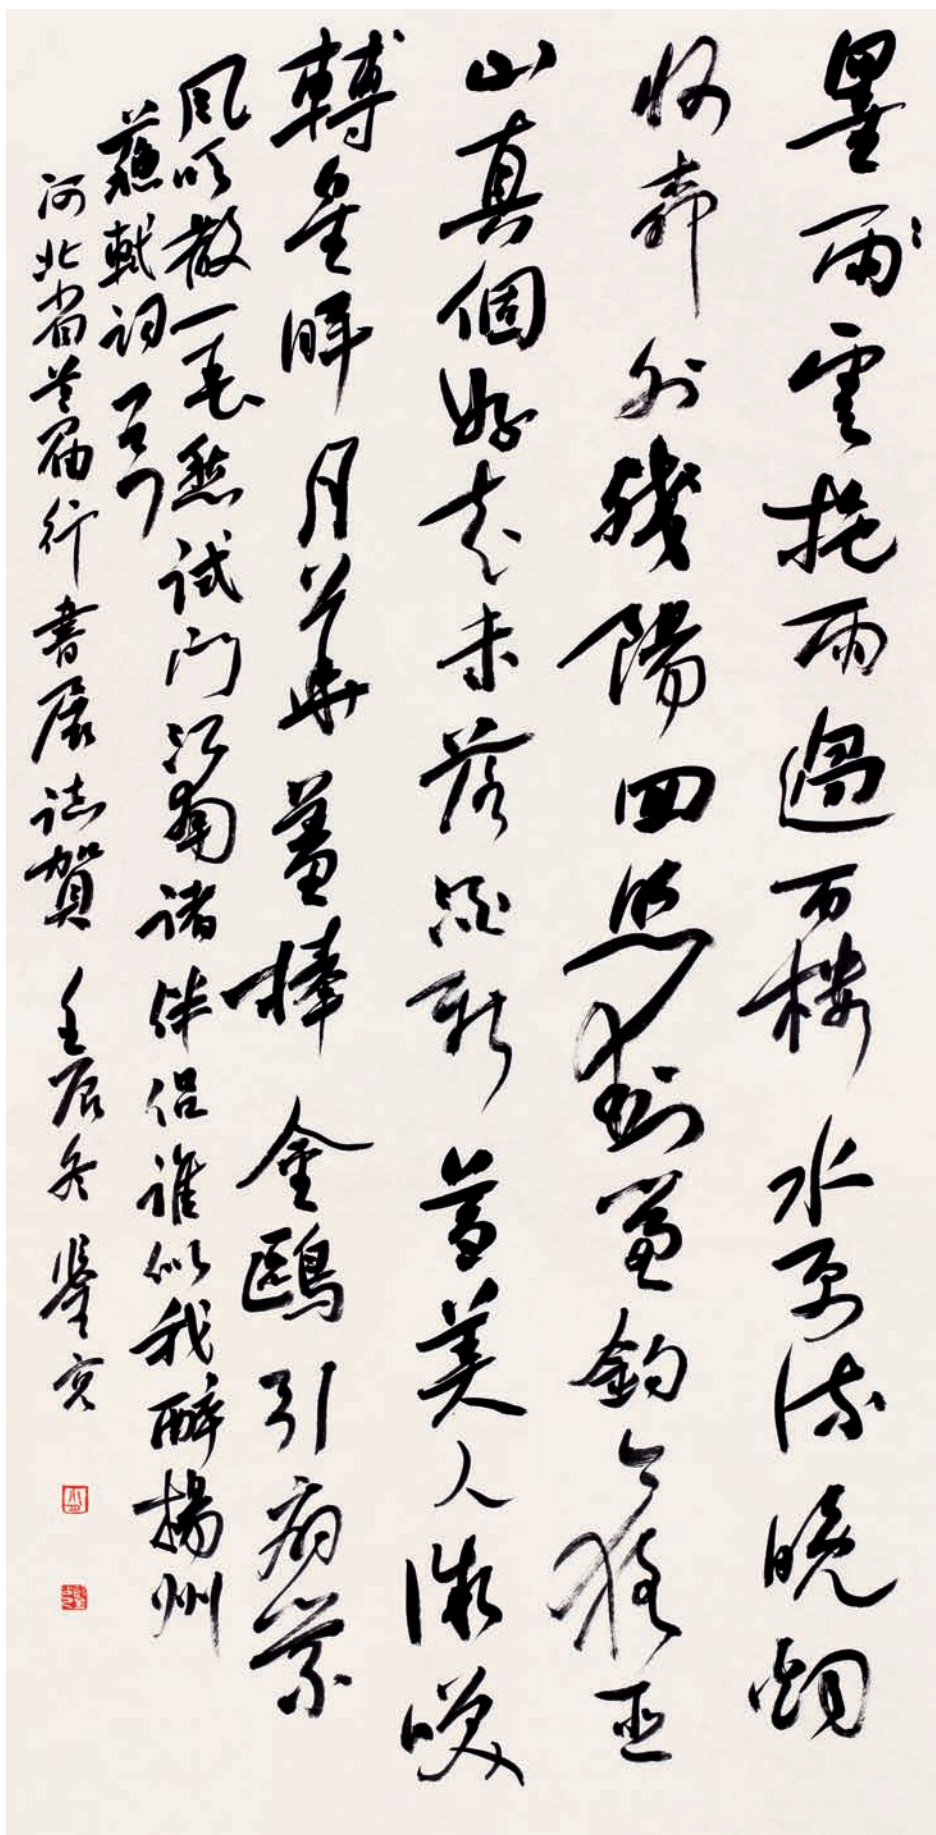 墨雨雲拖雨過西樓水東流晚烟
收柳外殘陽回照動簾鉤今夜巫
山真個好花未落酒新篘美人微笑
轉星眸月華羞捧金甌引扇縈
風吹散一春愁試問江南諸伴侶誰似我醉揚州
蘇軾詞一首
河北省首屆行書展誌賀 壬辰冬